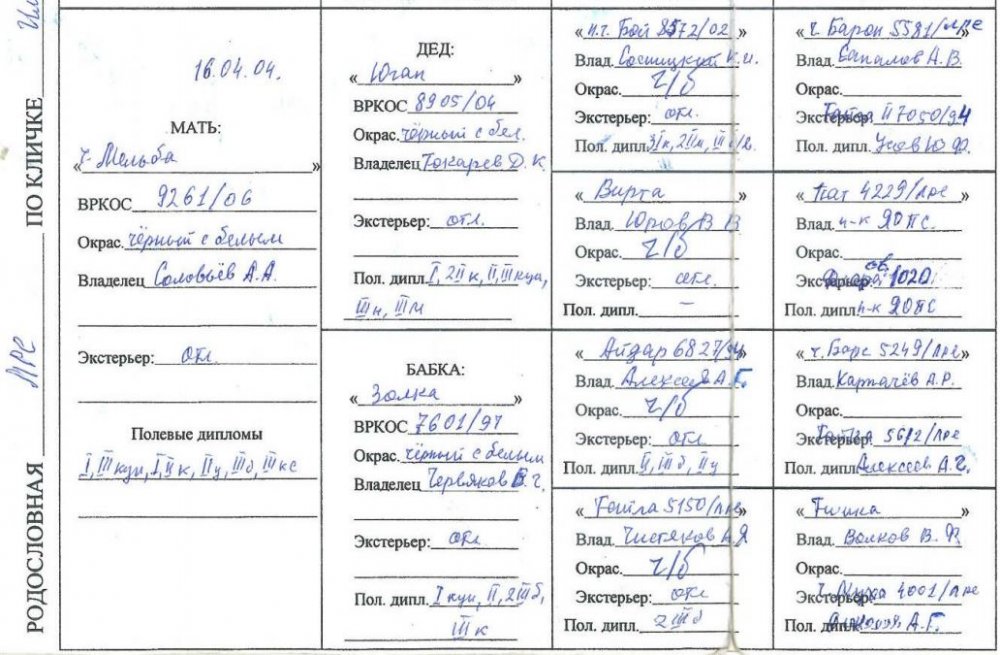 РОДОСЛОВНАЯ ЛРС ПО КЛИЧКЕ
16.04.04.
МАТЬ:
« ч. Мельба »
ВРКОС 9261/06
Окрас. чёрный с белым
Владелец Соловьёв А.А.
Экстерьер: отл.
Полевые дипломы
I, III кул, I, II к, II у, III б, III кс
ДЕД:
« Юган »
ВРКОС 8905/04
Окрас. чёрный с бел.
Владелец Токарев Д. К.
Экстерьер: отл.
Пол. дипл. I, 2II к, II, III кул,
III н, III м
БАБКА:
« Золка »
ВРКОС 7601/97
Окрас. чёрный с белым
Владелец Червяков В.Г.
Экстерьер: отл.
Пол. дипл. I кул, II, 2III б,
III к
« п.ч. Бой 8572/02 »
Влад. Сосницкий К.И.
Окрас. ч/б
Экстерьер: отл.
Пол. дипл.
« Вирта »
Влад. Юров В В
Окрас. ч/б
Экстерьер: отл.
Пол. дипл. –
« Айдар 6827/94 »
Влад. Алексеев А.Г.
Окрас. ч/б
Экстерьер: отл.
Пол. дипл. II, III б, II у
« Гойла 5150/лрс »
Влад. Чистяков А.Я
Окрас. ч/б
Экстерьер: отл
Пол. дипл. 2 III б
« ч. Барон 5581/лрс »
Влад. Сапалов А.В.
Окрас.
Экстерьер: II 7050/94
Пол. дипл. Усов Ю.Ф.
« Пат 4229/лрс »
Влад. п-к 20ПС.
Окрас.
Экстерьер: 1020.
Пол. дипл. п-к 20ПС
« ч. Барс 5249/лрс »
Влад. Карпачёв А.Р.
Окрас.
Экстерьер: 5612/лрс
Пол. дипл. Алексеев А.Г.
« Тишка »
Влад. Волков В. Ф
Окрас.
Экстерьер: ч. Муха 4001/лрс
Пол. дипл. А.Г.